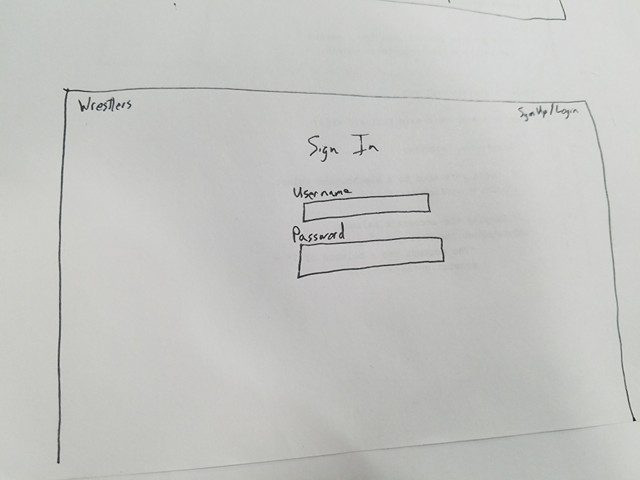 Wrestlers
Sign Up/Login
Sign In
Username
Password